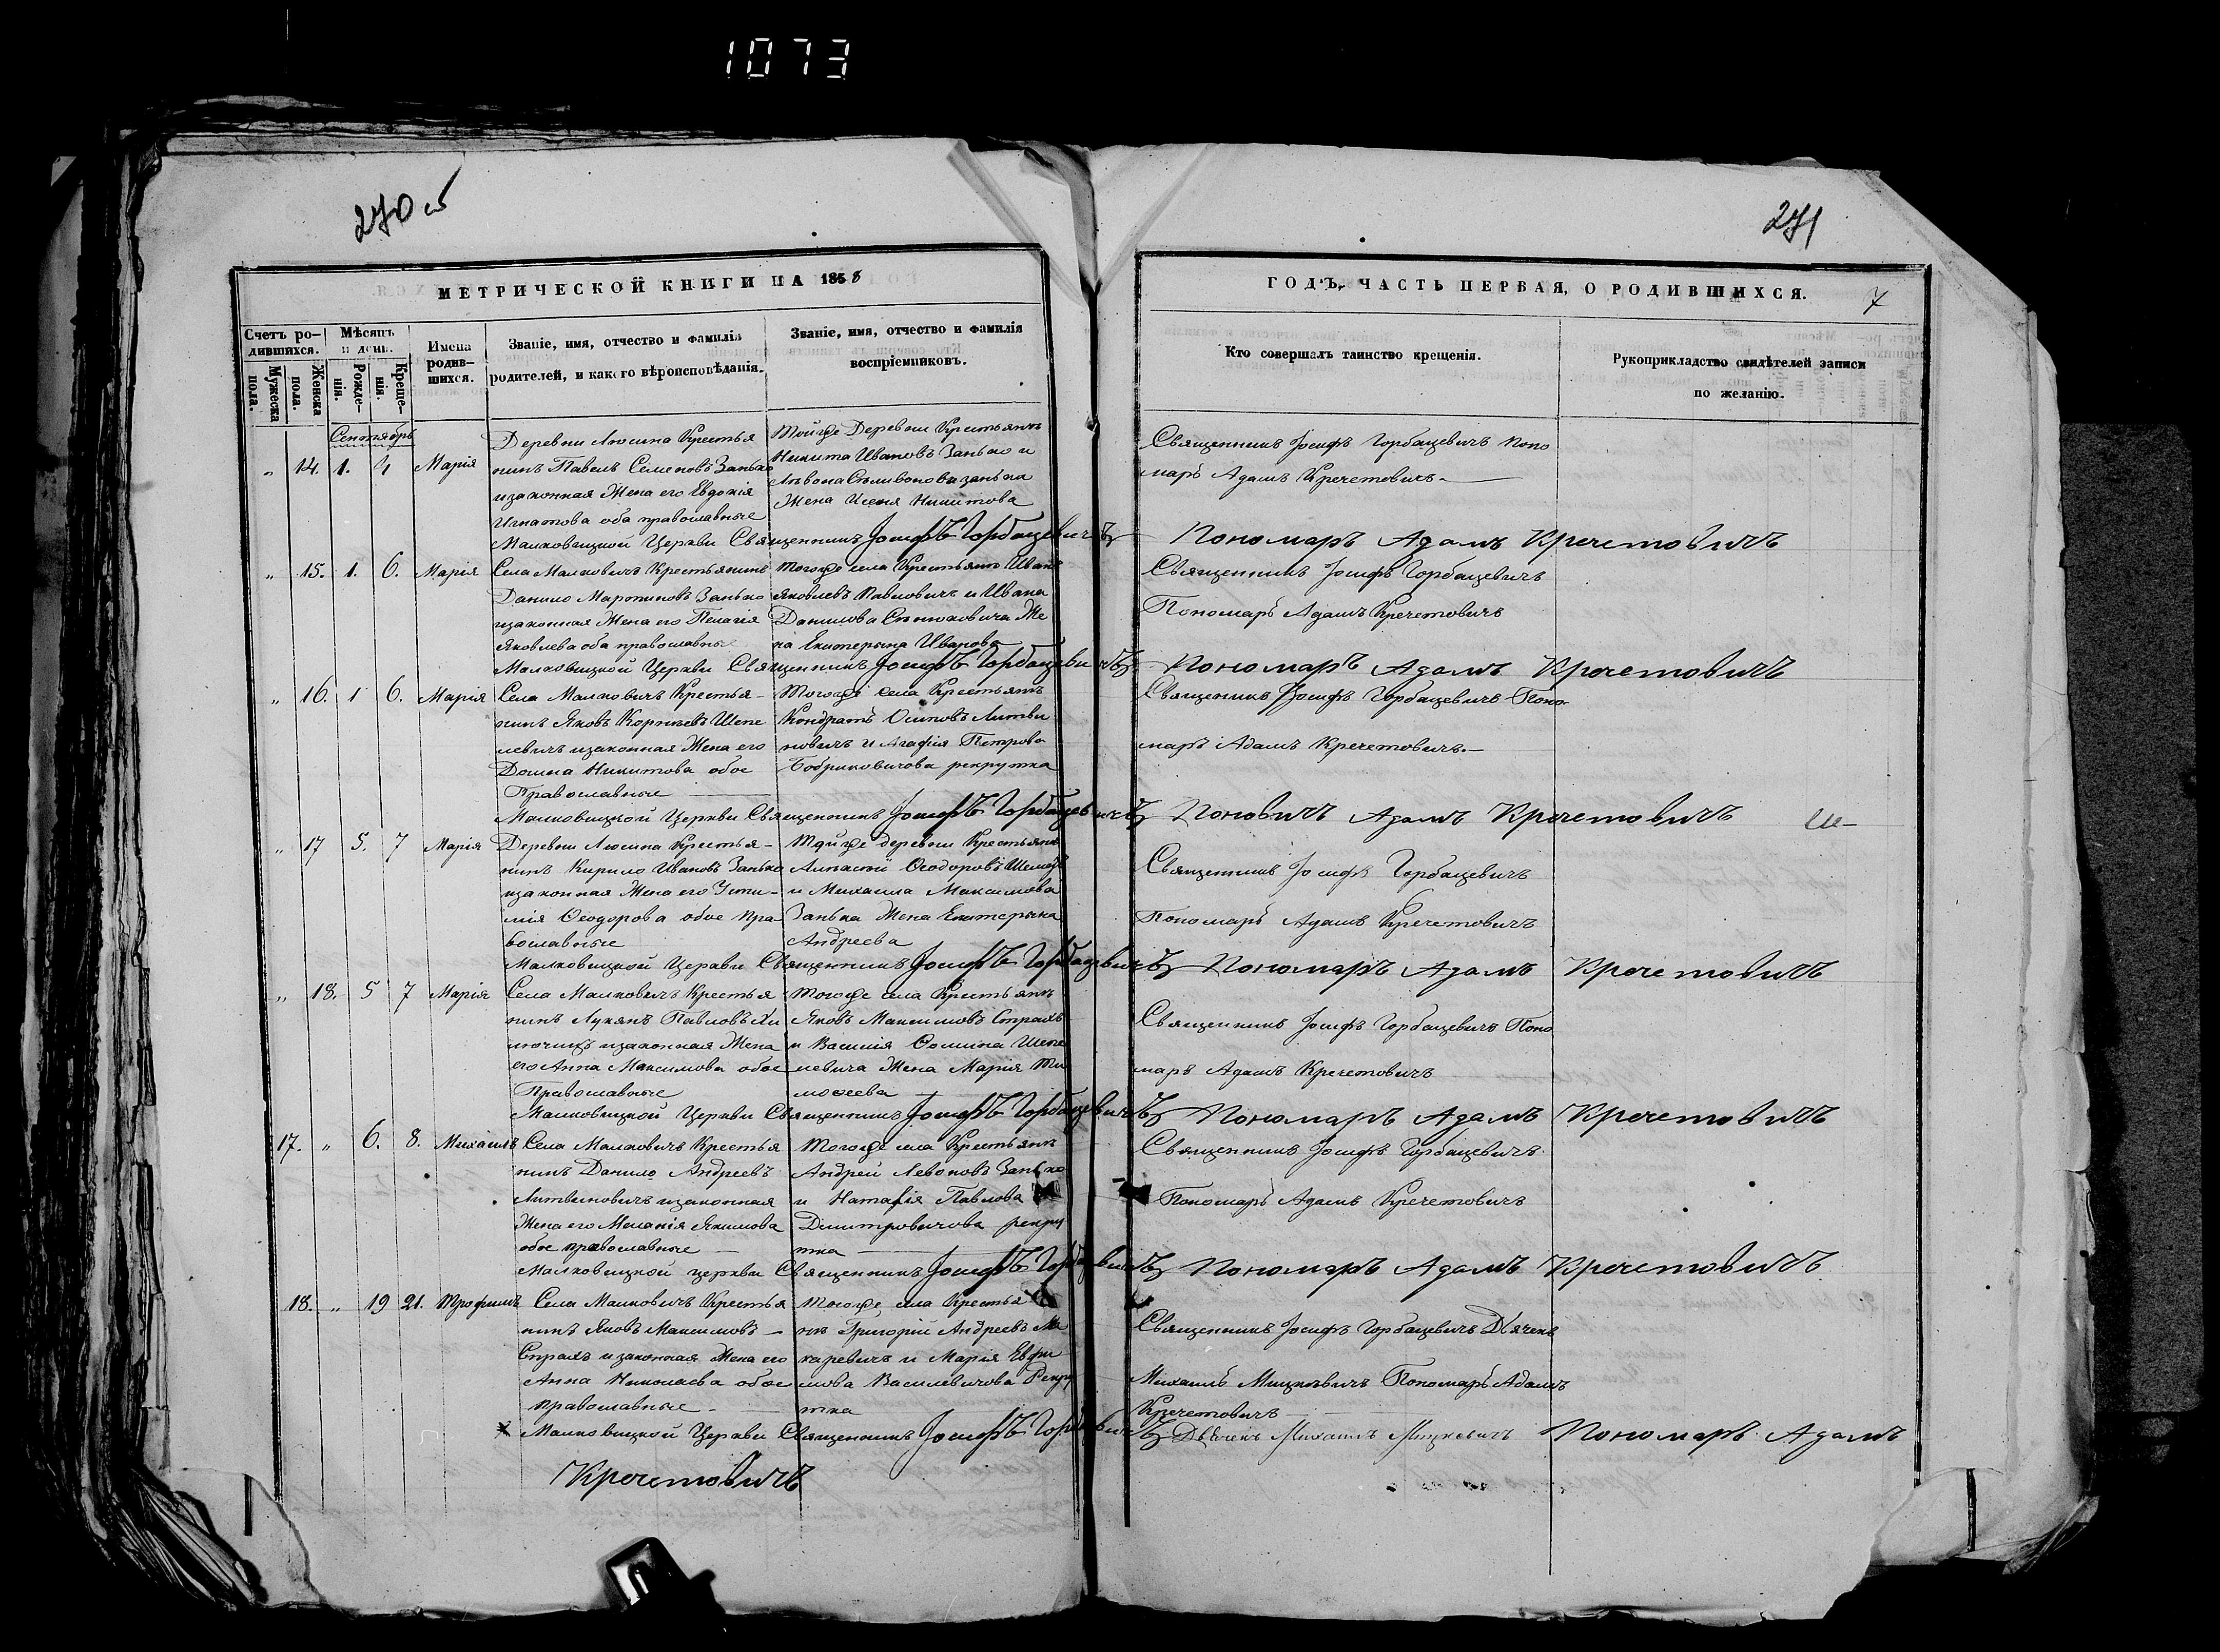 1073
270 об
271
МЕТРИЧЕСКОЙ КНИГИ НА 1858
ГОДЪ, ЧАСТЬ ПЕРВАЯ, О РОДИВШИХСЯ.
7
Счетъ ро-
дившихся.
Мужеска
пола.
Женска
пола.
Мѣсяцъ
и день.
Рожде-
нія.
Креще-
нія.
Имена
родив-
шихся.
Званіе, имя, отчество и фамилія
родителей, и какого вѣроисповѣданія.
Званіе, имя, отчество и фамилія
воспріемниковъ.
Кто совершалъ таинство крещенія.
Рукоприкладство свидѣтелей записи
по желанію.
Сентябрь
„ 14. 1. 4 Марія
Деревни Люсина Крестья
нинъ Павелъ Семеновъ Занько
изаконная Жена его Евдокія
Игнатова оба православные
Тойже Деревни Крестьянъ
Никита Ивановъ Занько и
Жена Ксеня Никитова
Священникъ Іосифъ Горбацевичъ Поно
маръ Адамъ Кречетовичъ
Малковицкой Церкви Священникъ Іосифъ Горбацевичъ Пономаръ Адамъ Кречетовичъ
„ 15. 1. 6. Марія
Села Малковичъ Крестьянинъ
Данило Мартиновъ Занько
изаконная Жена его Пелагія
Яковлева оба православные
Тогоже села Крестьянъ Иванъ
Яковлевъ Павловичъ и Ивана
Данилова Сѣнюковича Же
на Екатерына Иванова
Священникъ Іосифъ Горбацевичъ
Пономаръ Адамъ Кречетовичъ
Малковицкой Церкви Священникъ Іосифъ Горбацевичъ Пономаръ Адамъ Кречетовичъ
„ 16. 1 6. Марія
Села Малковичъ Крестья-
нинъ Яковъ Корнѣевъ Шепе
левичъ изаконная Жена его
Домна Никитова обое
Православные
Тогоже села Крестьянъ
Кондратъ Осиповъ Литви
новичъ и Агафія Петрова
Бобриковичова рекрутка
Священникъ Іосифъ Горбацевичъ Поно-
маръ Адамъ Кречетовичъ.
Малковицкой Церкви Священникъ Іосифъ Горбацевичъ Поновичъ Адамъ Кречетовичъ
„ 17 5. 7 Марія
Деревни Люсина Крестья-
нинъ Кирило Ивановъ Занько
изаконная Жена его Усти-
мія Ѳеодорова обое пра
вославные
Тойже деревни Крестьянъ
и Михаила Максимова
Занька Жена Екатерына
Андреева
Священникъ Іосифъ Горбацевичъ
Пономаръ Адамъ Кречетовичъ
Малковицкой Церкви Священникъ Іосифъ Горбацевичъ Пономаръ Адамъ Кречетовичъ
„ 18. 5 7 Марія
Села Малковичъ Крестья
нинъ Лукянъ Павловъ Хи
лючикъ изаконная Жена
его Анна Максимова обое
Православные
Тогоже села Крестьянъ
Яковъ Максимовъ Страхъ
и Василія Ѳомина Шепе
левича Жена Марія Ти
моѳеева
Священникъ Іосифъ Горбацевичъ Поно
маръ Адамъ Кречетовичъ
Малковицкой Церкви Священникъ Іосифъ Горбацевичъ Пономаръ Адамъ Кречетовичъ
17. „ 6. 8. Михаилъ
Села Малковичъ Крестья
нинъ Данило Андреевъ
Литвиновичъ изаконная
Жена его Меланія Якимова
обое православные
Тогоже села Крестьянъ
Андрей Левоновъ Занько
и Наталія Павлова
Димитровичова рекру
тка
Священникъ Іосифъ Горбацевичъ
Пономаръ Адамъ Кречетовичъ
Малковицкой церкви Священникъ Іосифъ Горбацевичъ Пономаръ Адамъ Кречетовичъ
18. „ 19 21. Трофимъ
Села Малковичъ Крестья
нинъ Яковъ Максимовъ
Страхъ изаконная Жена его
Анна Николаева обое
православные
Тогоже села Крестья
нъ Григорій Андреевъ Ма
каревичъ и Марія Евфи
мова Василевичова Рекру
тка
Священникъ Іосифъ Горбацевичъ Дьячекъ
Михаилъ Мицкевичъ Пономаръ Адамъ
Кречетовичъ
Малковицкой Церкви Священникъ Іосифъ Горбацевичъ Дьячекъ Михаилъ Мицкевичъ Пономаръ Адамъ
Кречетовичъ